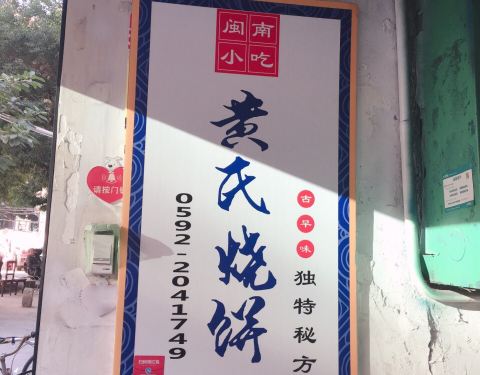 闽南
小吃
黄氏烧饼
古早味
独特秘方
0592-2041749
请按门